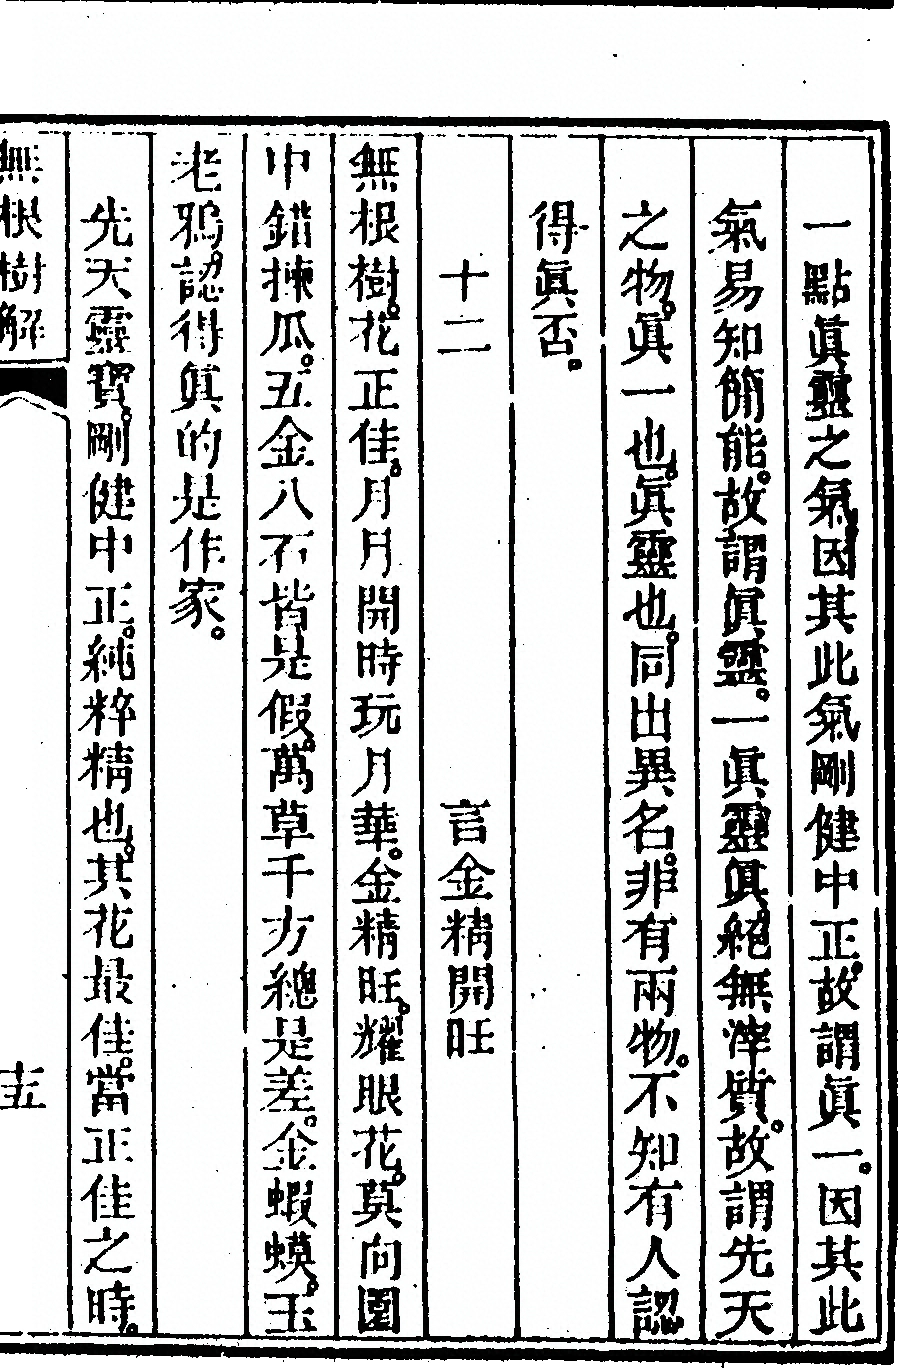 一點眞靈之氣因其此氣剛健中正故謂眞一。因其此
氣易知簡能。故謂眞靈。一眞靈眞絕無滓質。故謂先天
之物。眞一也。眞靈也。同出異名。非有兩物。不知有人認
得眞否。
十二 言金精開旺
無根樹。花正佳。月月開時玩月華。金精旺。耀眼花。莫向園
中錯揀瓜。五金八石皆是假。萬草千方總是差。金蝦蟆。玉
老鴉。認得眞的是作家。
先天靈寶。剛健中正。純粹精也。其花最佳。當正佳之時。
無根樹解 十五